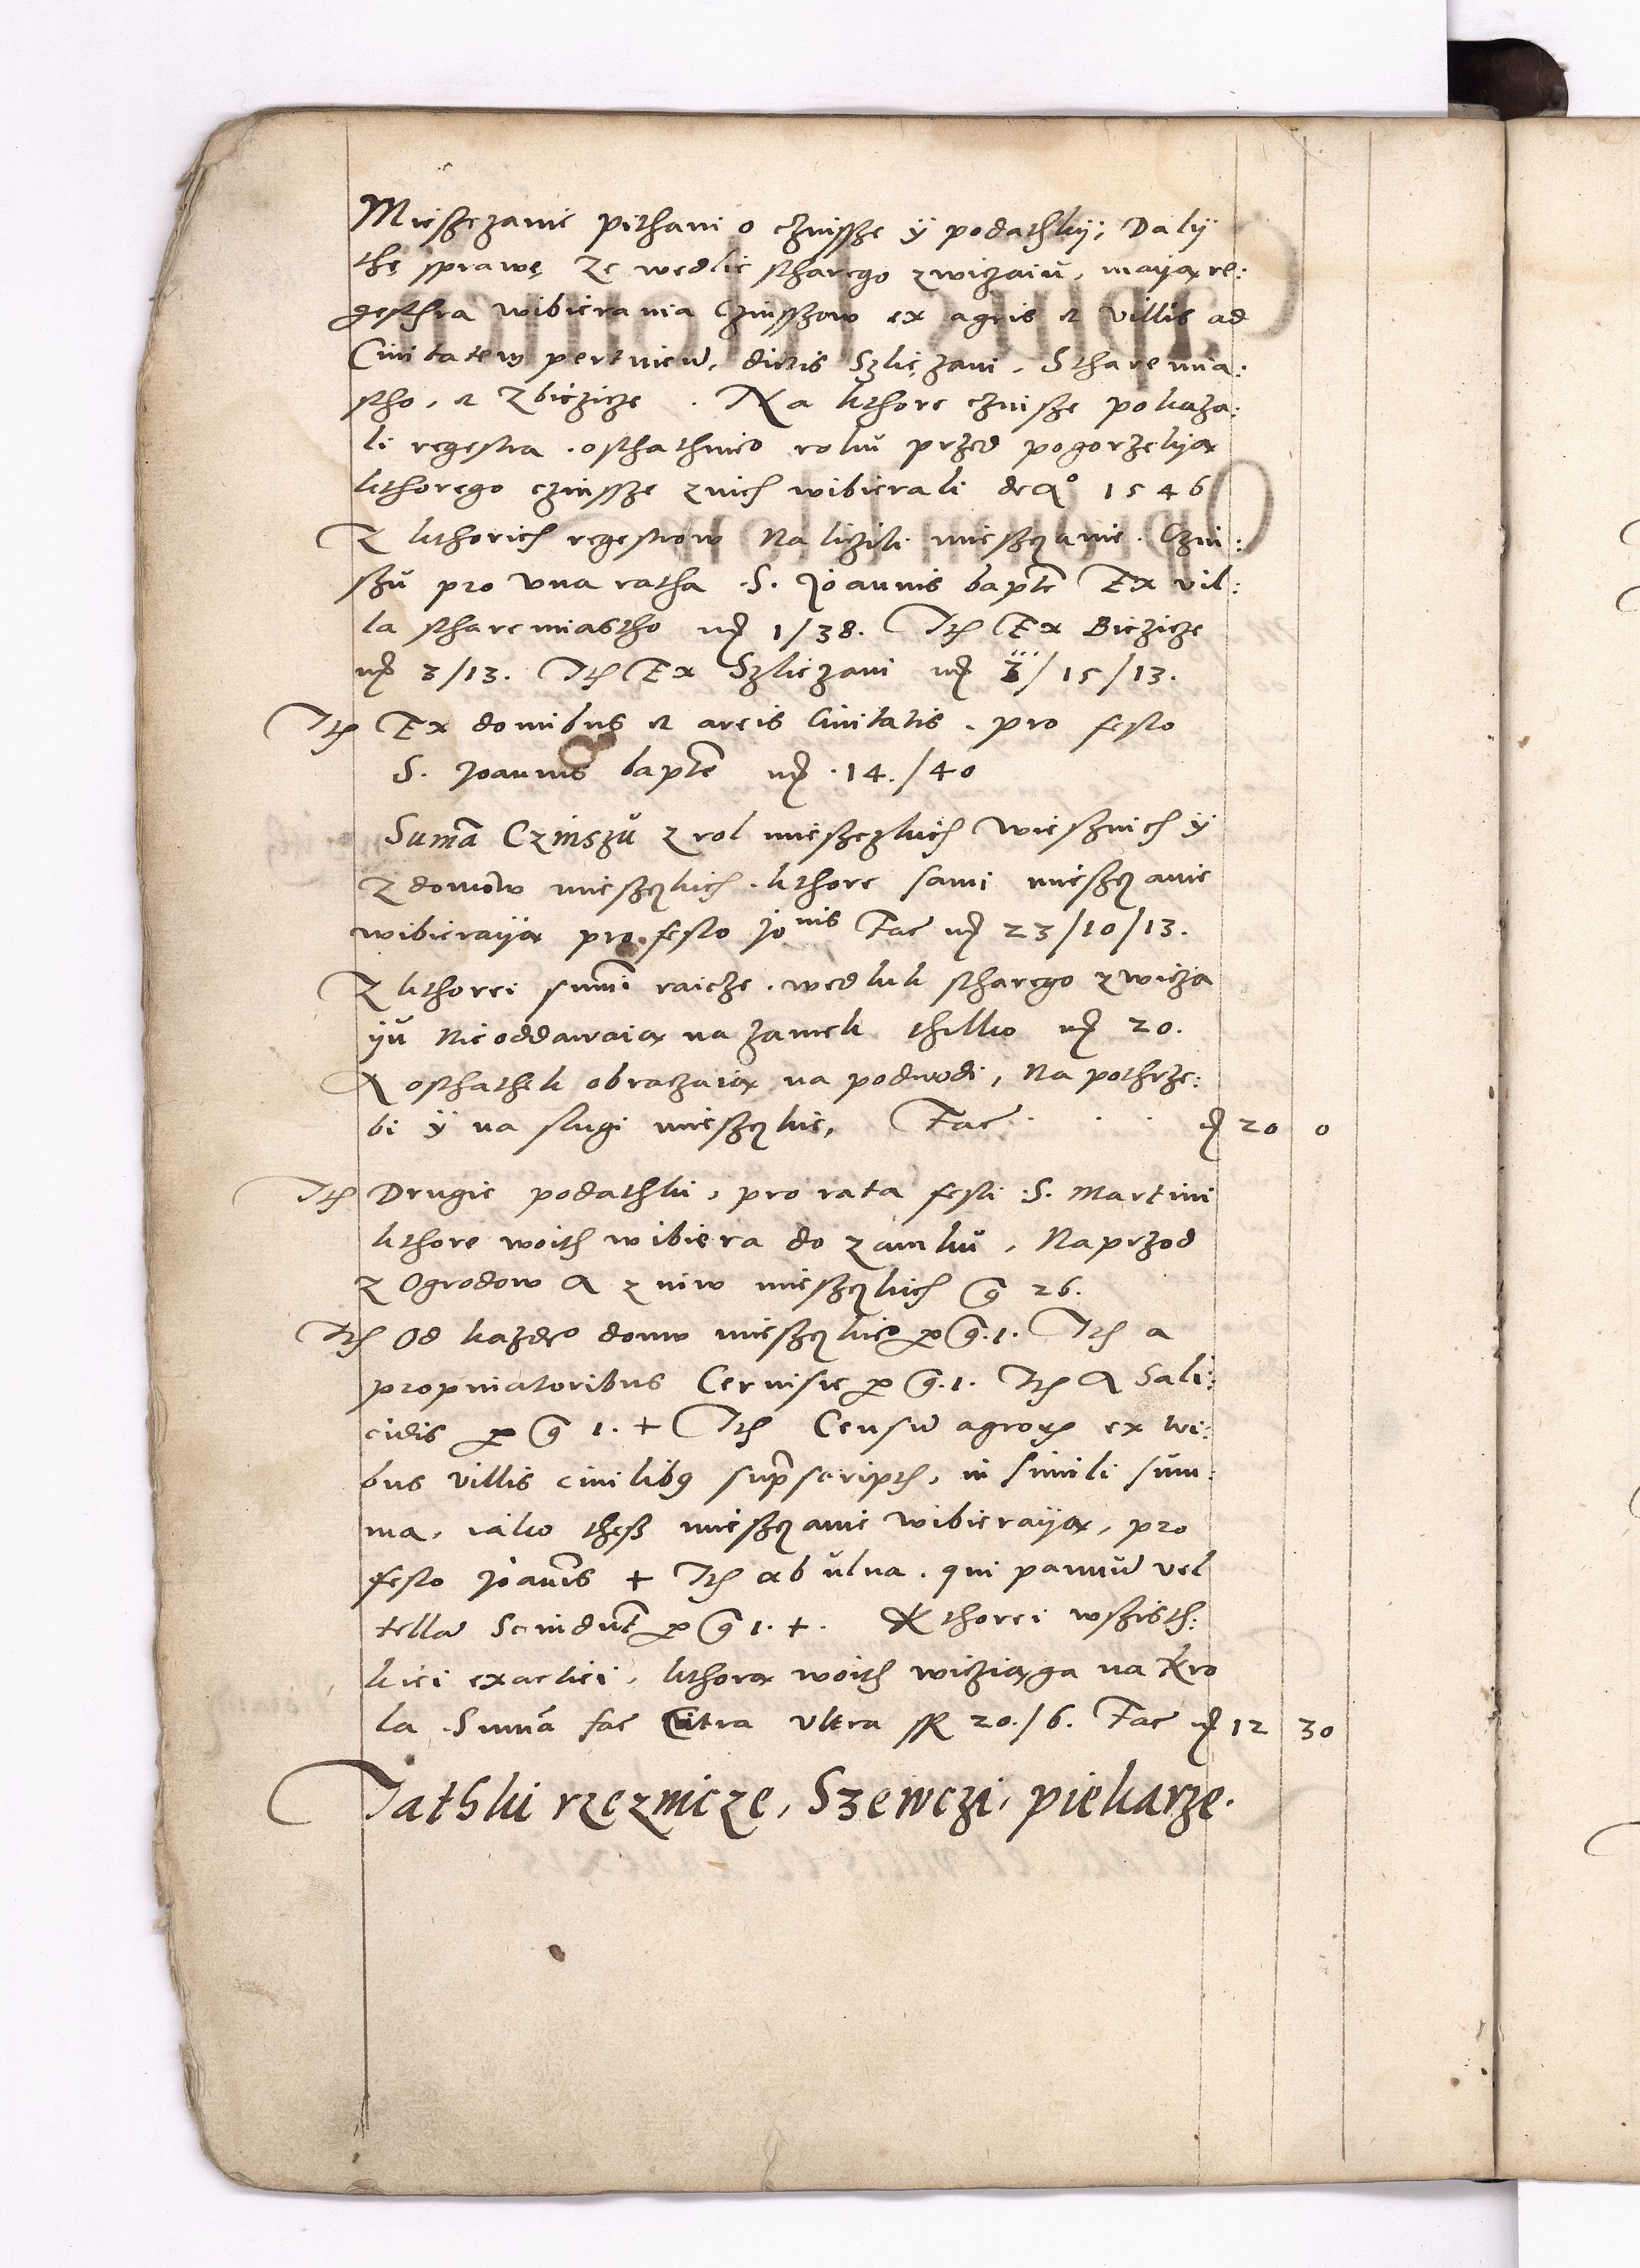 Mieszczanie pithani o czinssze ÿ podathkÿ, Dalÿ
thę sprawę ze wedlie stharego zwiczaiu, mayą re:
gesthra wibierania Czinsszow ex agris et villis ad
Civitatem pertinen. dictis Szliczani, Stharemia:
stho, et Zbiczicze. Na kthore czinsze pokaza:
li regestra osthathnieo roku przed pogorzelyą
kthorego czinssze znich wibierali de Aº 1546
Z kthorich regestrow Naliczili mieszczanie Czin:
szu pro una ratha S. Joannis bapte Ex vil:
la stharemiastho mr 1/38. Itm Ex Biczicze
mr 3/13. Itm Ex Szliczani mr 3/15/13.
Itm Ex domibus et areis Civitatis pro festo
S. Joannis bapte mr 14./40
Suma Czinszu z rol mieszczkich wiesznich ÿ
z domow mieszczkich kthore sami mieszczanie
wibierayą pro festo Jonis Fac mr 23/10/13.
Z kthorei summi raicze wedluk stharego zwicza
yu Nie oddawaią na zamek thilko mr 20.
A osthathek obraczaią na podwodi, Na pothrze:
bi ÿ na slugi mieszczkie, Fac mr 20 0
Itm Drugie podathki, pro rata festi S. Martini
kthore woith wibiera do zamku, Naprzod
z Ogrodow A z niw mieszczkich gr 26.
Itm Od kazdeo domu mieszczkieo p gr 1. Itm a
propinatoribus Cervisie p gr 1. Itm A Sali:
cidis p gr 1. + Itm Censu agrorum ex tri:
bus villis civilibus suprscriptis, in simili sum:
ma, iako thesz mieszczanie wibierayą, pro
festo Joannis + Itm ab ulna qui pannum vel
tellam Scindunt p gr 1. +. Kthorei wszisth:
kiei exactiei, kthorą woith wicziąga na kro
la Summa fac Citra Ultra 20./6. Fac mr 12 30
Jathki rzeznicze, Szewczi, piekarze.